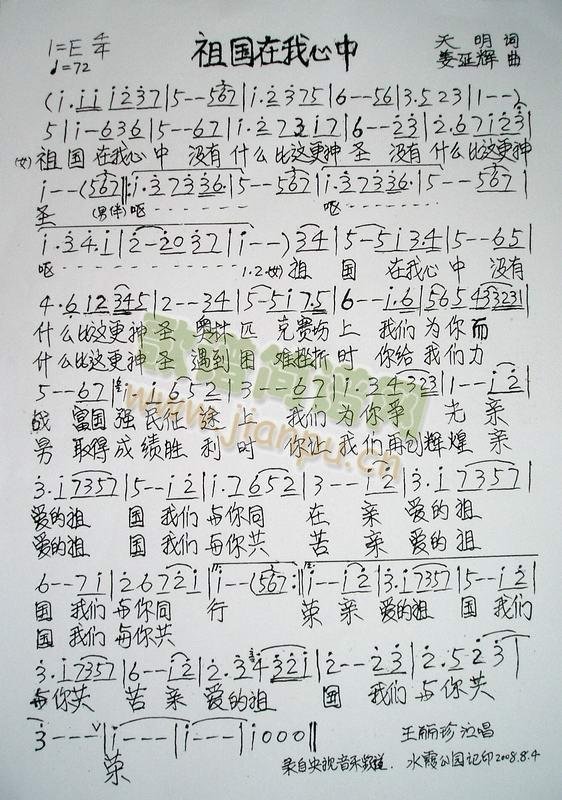 1=E 4/4
♩=72
祖国在我心中
天 明 词
姜延辉 曲
(i·ii i237|5--567|i·2375|6--56|3·523|1--)
5|i-636|5--67|i·273i7|6--23|2·67i23|
(女)祖 国 在我心 中 没有 什么 比这更神 圣 没有 什么 比这更神
i--(567|:i·37336·|5--567|i·37336·|5--567|
圣 (男伴)呕 呕
i·34·i|2-2037|i--)34|5-5i34|5--65|
呕 1.2.(女)祖 国 在我心 中 没有
4·612345|2--34|5-5i7·5|6--i·6|565433231|
什么比这更神 圣 奥林 匹 克赛场上 我们 为你而
什么比这更神 圣 遇到 困 难挫折时 你给 我们力
5--67|i·6652|3--67|i·34323|1--i2|
战 富国 强民征途上 我们 为你争 光 亲
男 取得 成绩胜利时 你让 我们再创辉煌 亲
3·i7357|5--i2|i·7652|3--i2|3·i7357|
爱的祖 国 我们 与你同 在 亲 爱的祖
爱的祖 国 我们 与你共 苦 亲 爱的祖
6--7i|2672i|i--(567:|i--i2|3·i7357|5--i2|
国 我们 与你同 行 荣 亲 爱的祖 国 我们
国 我们 与你共
3·i7357|6--i2|2·3432i|2--23|2·523|
与你共 苦 亲 爱的祖 国 我们 与你共
3---∨|i---|i---|i000‖
荣
王丽珍 泣唱
录自央视音乐频道. 水霞公园记印2008.8.4
歌谱简谱网
www.jianpu.cn